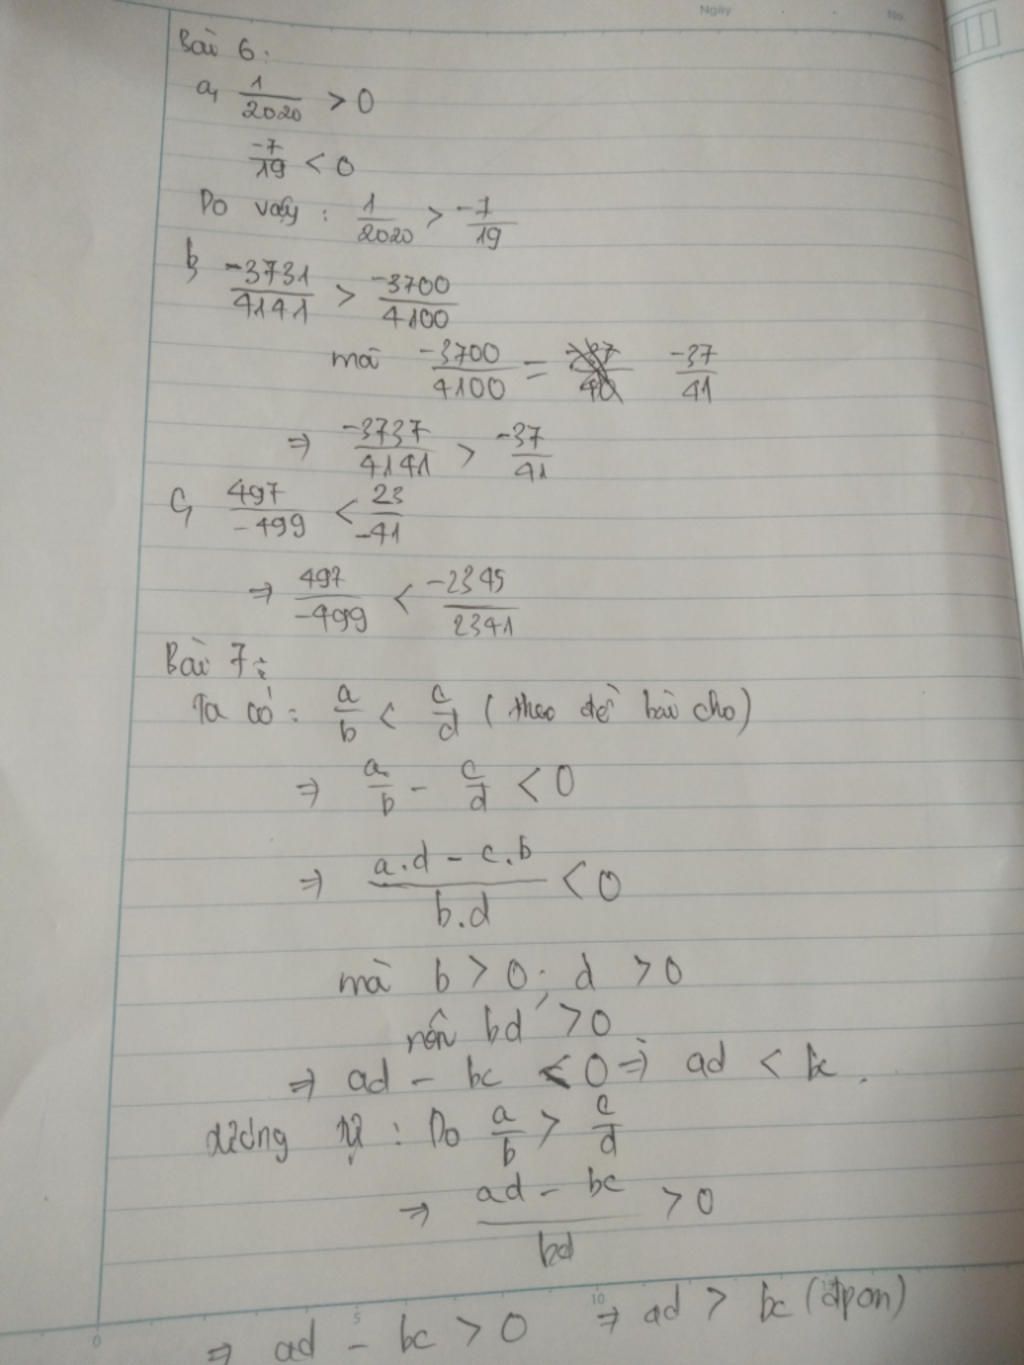 Ngày No.
Bài 6:
a, 1/2020 > 0
-7/19 < 0
Do vậy : 1/2020 > -7/19
b, -3731/4141 > -3700/4100
mà -3700/4100 = -37/41
⇒ -3737/4141 > -37/41
c, 497/-499 < 23/-41
⇒ 497/-499 < -2345/2341
Bài 7:
Ta có: a/b < c/d (theo đề bài cho)
⇒ a/b - c/d < 0
⇒ a.d - c.b/b.d < 0
mà b > 0; d > 0
nên bd > 0
⇒ ad - bc < 0 ⇒ ad < bc.
Tương tự : Do a/b > c/d
⇒ ad - bc/bd > 0
⇒ ad - bc > 0 ⇒ ad > bc (đpcm)
0 5 10